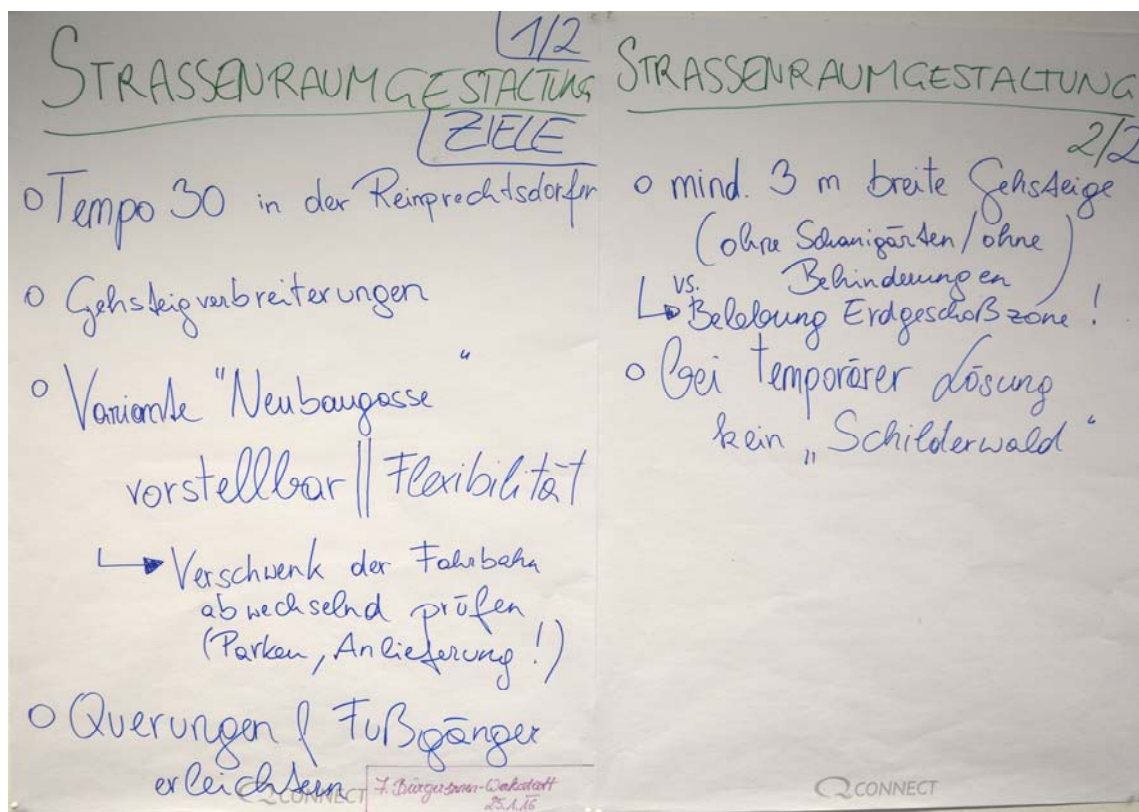 1/2
STRASSENRAUMGESTALTUNG
ZIELE
o Tempo 30 in der Reinprechtsdorfer
o Gehsteigverbreiterungen
o Variante "Neubaugasse"
vorstellbar || Flexibilität
Verschwenk der Fahrbahn
abwechselnd prüfen
(Parken, Anlieferung!)
o Querungen f Fußgänger
erleichtern
CONNECT
7. BürgerInnen-Werkstatt
25.1.16
STRASSENRAUMGESTALTUNG
2/2
o mind. 3 m breite Gehsteige
(ohne Schanigärten/ohne
Behinderungen)
vs.
Belebung Erdgeschoßzone!
o Bei temporärer Lösung
kein „Schilderwald“
CONNECT